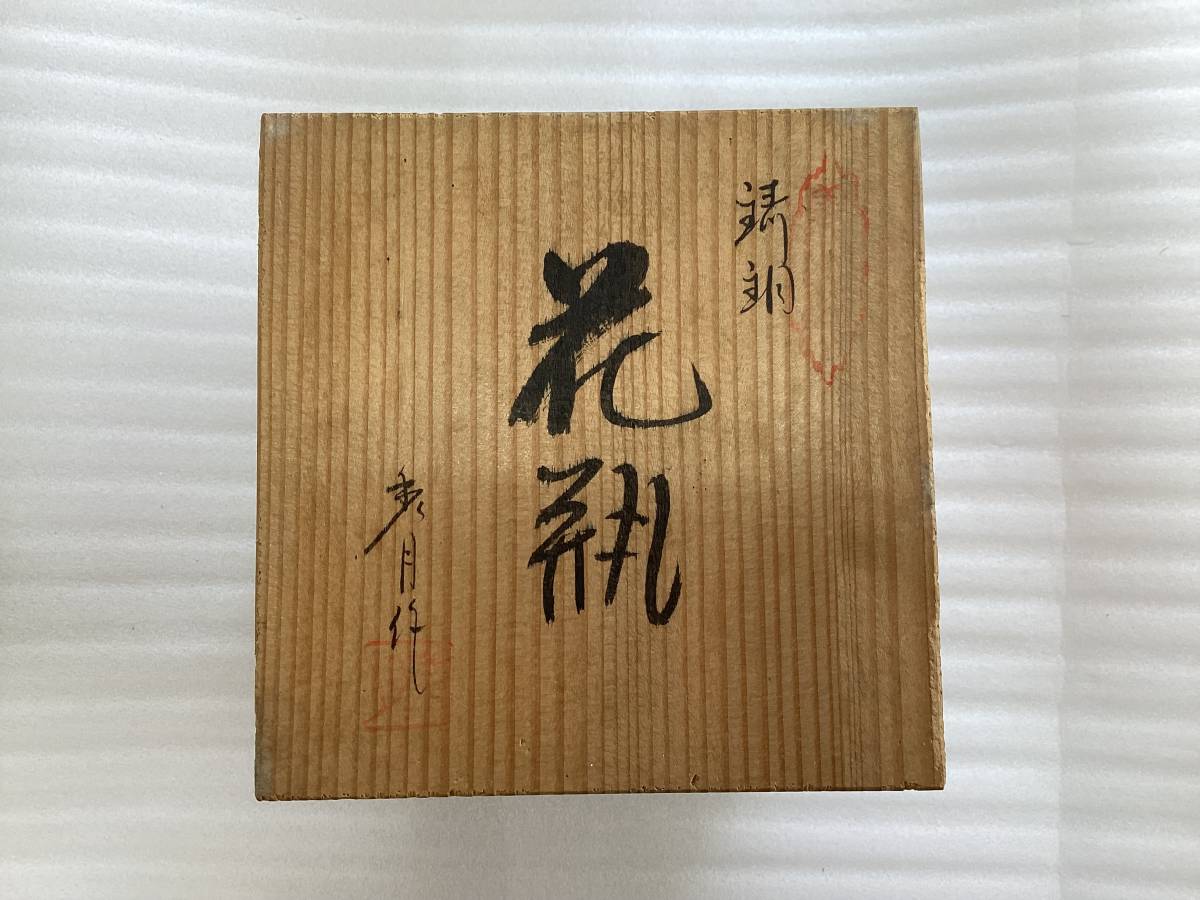 鋳銅
花瓶
秀月作